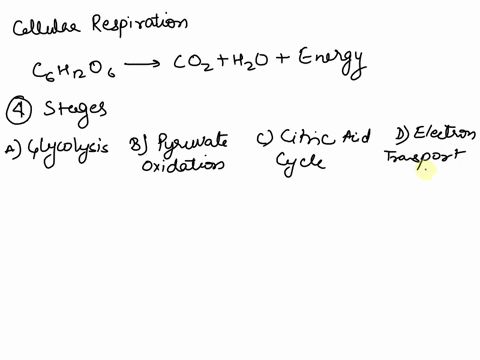 Cellular Respiration
C₆H₁₂O₆ → CO₂ + H₂O + Energy
④ Stages
A) Glycolysis B) Pyruvate Oxidation C) Citric Aid Cycle D) Electron Transport